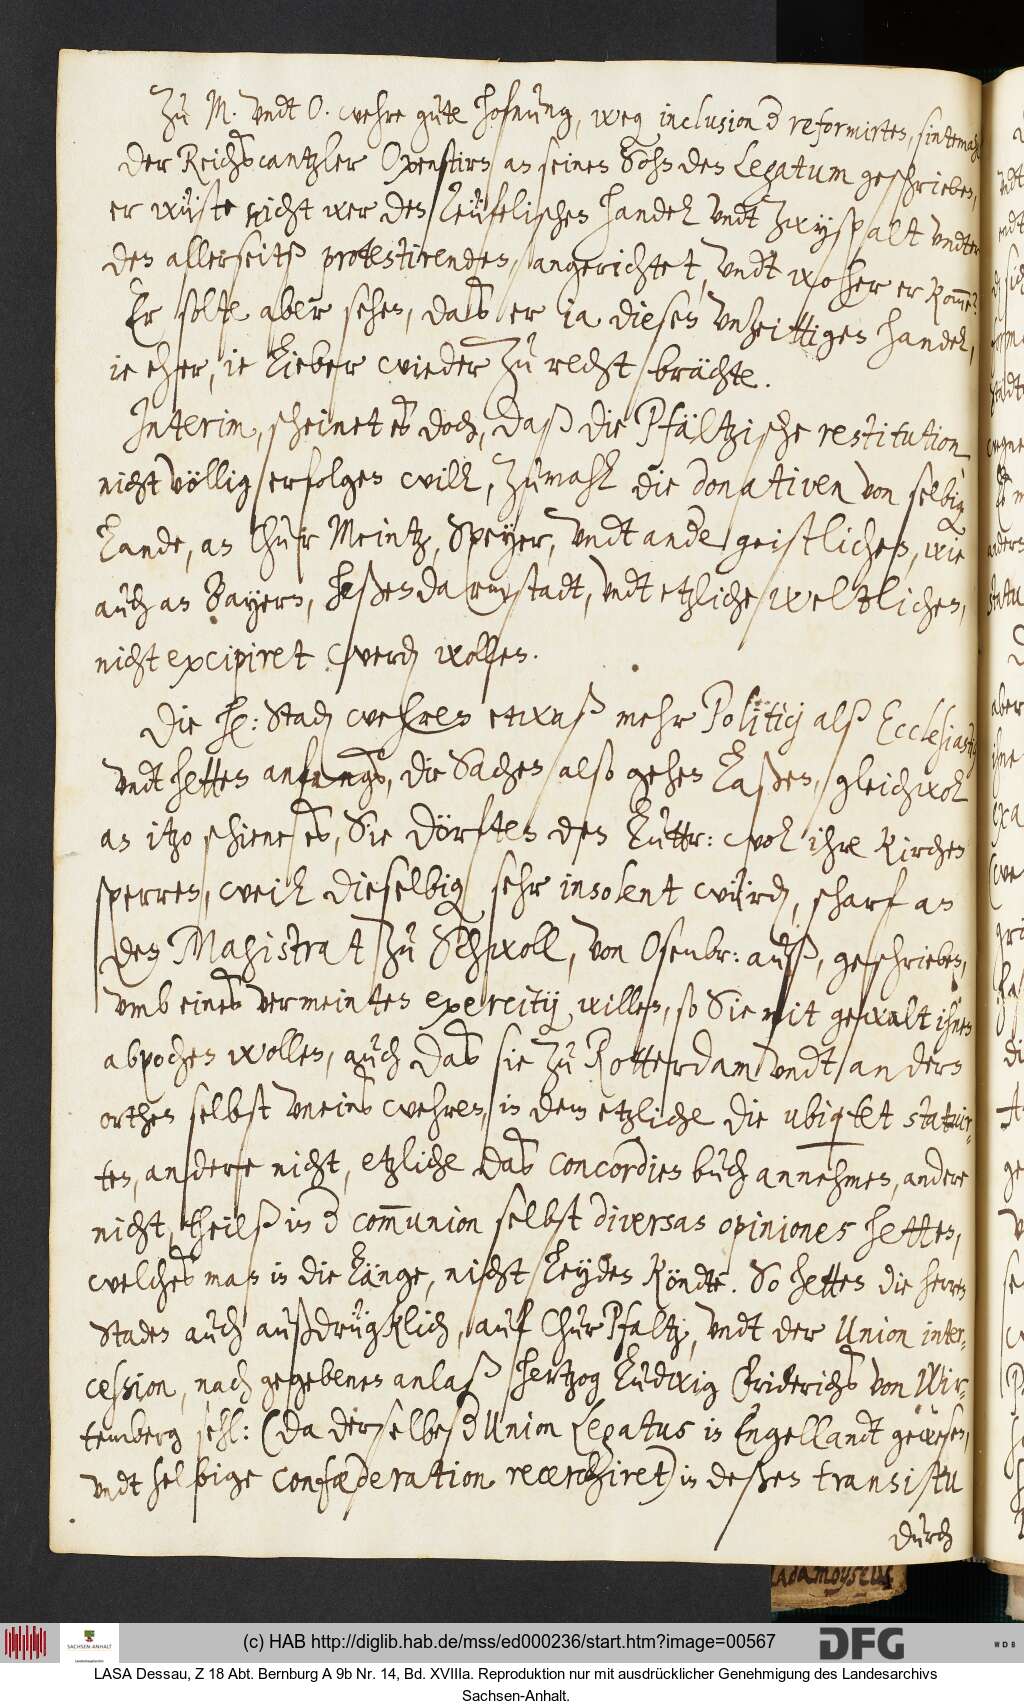 Zu M. vndt O. wehre gute hofnung, weg inclusion d reformirten, sintemahl
der Reichscantzler Oxenstirn an seinen Sohn den Legatum geschrieben,
er wüste nicht wer den Teüfelischen handel vndt Zwyspalt vndter
den allerseitß protestirenden, angerichtet, vndt woher er kom̄e?
Er solte aber sehen, das er ia diesen vnzeittigen handel,
ie eher, ie lieber wieder zu recht brächte.
Interim, scheinet es doch, daß die Pfältzische restitution
nicht völlig erfolgen will, zumahl die donativen von selbig
Lande, an Chur Meintz, Speyer, vndt ande geistlichen, wie
auch an Bayern, Heßen Darmstadt, vndt etzliche weltlichen,
nicht excipiret werd wollen.
Die H: Stad wehren etwaß mehr Politicj alß Ecclesiastici
vndt hetten anfangs, die Sachen also gehen laßen, gleichwol
an itzo schiene es, Sie dörften den Luttr: wol ihre Kirchen
sperren, weil dieselbig sehr insolent würd, scharf an
den Magistrat zu Schwoll, von Osenbr: auß, geschrieben,
vmb eines vermeinten exercitij willen, so Sie mit gewalt ihnen
abpochen wollen, auch das sie zu Rotterdam vndt andern
orthen selbst vneins wehren, in dem etzliche die ubiqtet statuir-
ten, andere nicht, etzliche das concordien buch annehmen, andere
nicht, theilß in d com̄union selbst diversas opiniones hetten,
welches man in die länge, nicht leyden köndte. So hetten die herren
Staden auch außdrügklich, auf Chur Pfaltz, vndt der Union inter-
cession, nach gegebenen anlaß Hertzog Ludwig Friderichs von Wir-
temberg sehl: (da derselbe d Union Legatus in Engellandt gewesen,
vndt selbige confœderation recerchiret) in deßen transitu
durch
(c) HAB http://diglib.hab.de/mss/ed000236/start.htm?image=00567
DFG
WDB
SACHSEN-ANHALT
LASA Dessau, Z 18 Abt. Bernburg A 9b Nr. 14, Bd. XVIIIa. Reproduktion nur mit ausdrücklicher Genehmigung des Landesarchivs
Sachsen-Anhalt.